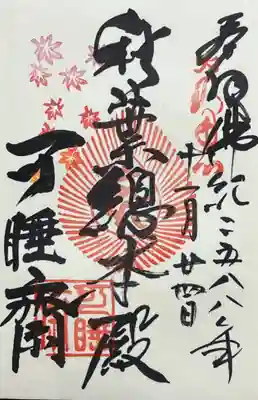 奉拝
佛紀二五八八年
十一月廿四日
秋葉總本殿
可睡齋